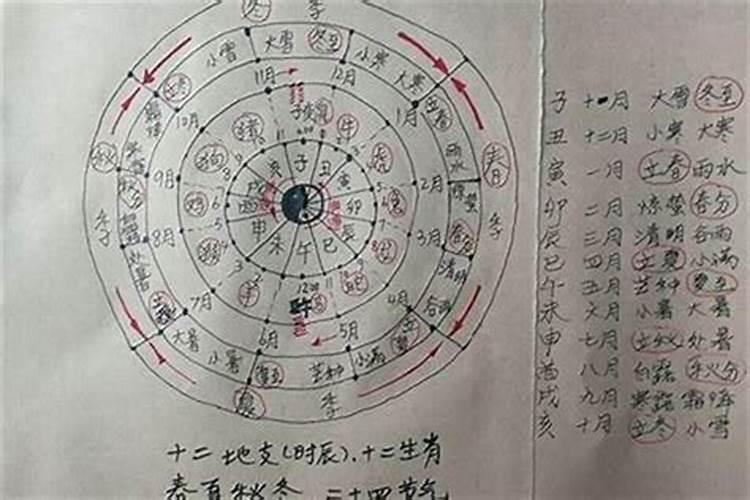 冬 季
小雪 大雪 冬至 小寒 大寒
立冬 11月 12月 立春
10月 1月
子 丑 寅 卯 辰 巳 午 未 申 酉 戌 亥
鼠 牛 虎 兔 龙 蛇 羊 猴 鸡 狗 猪
秋 季
9月 2月
秋分
8月 3月
处暑
7月 4月
6月 5月
春 季
雨水
惊蛰
春分
清明
谷雨
立夏
大暑 小暑 夏至 芒种 小满
夏 季
子 十一月 大雪 冬至
丑 十二月 小寒 大寒
寅 一月 立春 雨水
卯 二月 惊蛰 春分
辰 三月 清明 谷雨
巳 四月 立夏 小满
午 五月 芒种 夏至
未 六月 小暑 大暑
申 七月 立秋 处暑
酉 八月 白露 秋分
戌 九月 寒露 霜降
亥 十月 立冬 小雪
十二地支(时辰)、十二生肖
春夏秋冬 二十四节气